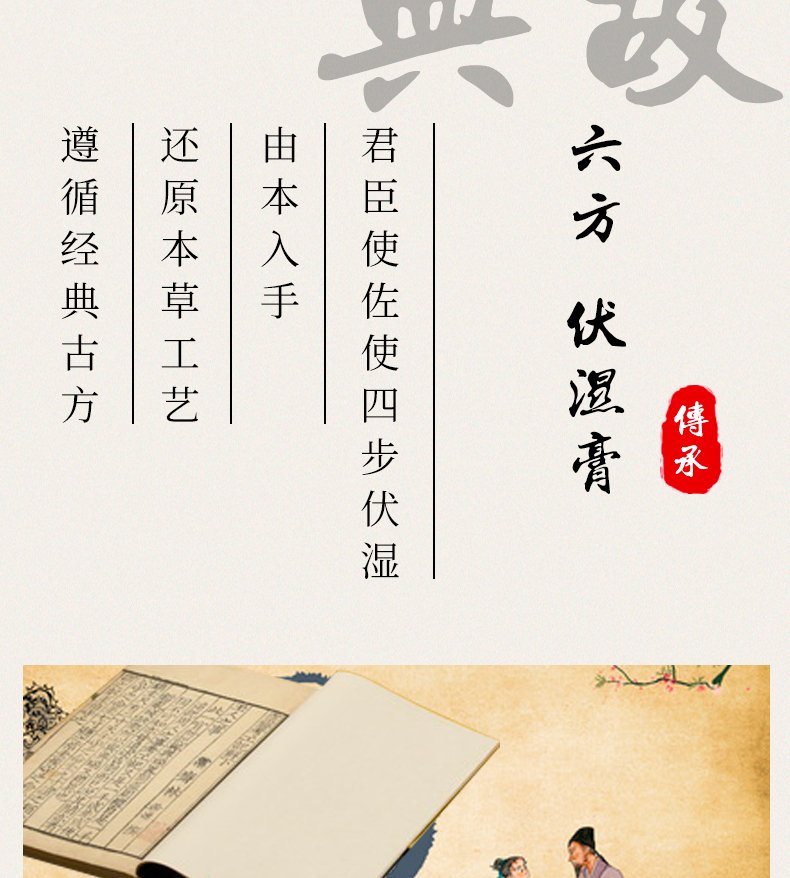 典故
六方 伏濕膏
傳承
君臣使佐使四步伏湿
由本入手
还原本草工艺
遵循经典古方